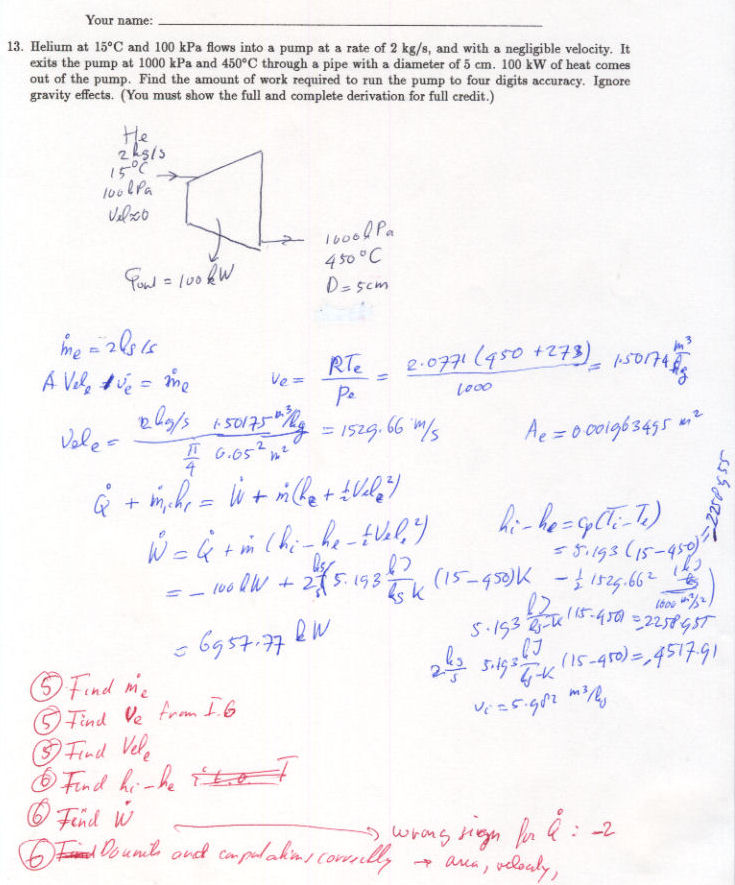 Your name:
13. Helium at 15°C and 100 kPa flows into a pump at a rate of 2 kg/s, and with a negligible velocity. It
exits the pump at 1000 kPa and 450°C through a pipe with a diameter of 5 cm. 100 kW of heat comes
out of the pump. Find the amount of work required to run the pump to four digits accuracy. Ignore
gravity effects. (You must show the full and complete derivation for full credit.)
He
2 kg/s
15°C
100 kPa
Vel≈0
1000 kPa
450°C
D = 5cm
Q̇out = 100 kW
ṁe = 2 kg/s
A Vele / ve = ṁe
ve = RTe / Pe = 2.0771 (450 + 273) / 1000 = 1.50174 m³/kg
Vele = 2 kg/s 1.50175 m³/kg / π/4 0.05² m² = 1529.66 m/s
Ae = 0.001963495 m²
Q̇ + ṁ,hi = Ẇ + ṁ(he + ½Vele²)
Ẇ = Q̇ + ṁ (hi - he - ½Vele²)
hi - he = cp(Ti - Te)
= 5.193 (15 - 450) = -2258.955
= - 100 kW + 2 kg/s 5.193 kJ/kg K (15 - 450)K - ½ 1529.66² 1 kJ/kg / 1000 m²/s²
= 6957.77 kW
5.193 kJ/kg-K (15-450) = 2258955
2 kg/s 5.193 kJ/kg-K (15-450) = 4517.91
vi = 5.982 m³/kg
5 Find ṁe
5 Find ve from I.G
5 Find Vele
6 Find hi-he i.t.o. T
6 Find Ẇ
wrong sign for Q̇ : -2
6 Find Do units and computations correctly → area, velocity,